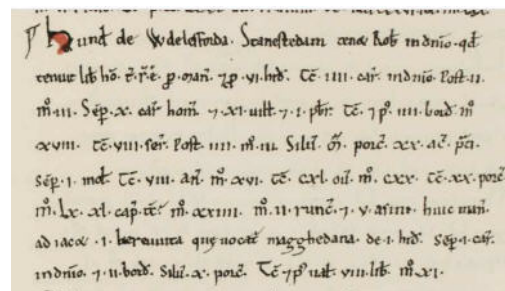 hund de Wdelesforda. Stanestedam ten& Rob in dnio. qd
tenuit lib ho. t. r. e. p. man. 7 p. vi. hid. Tc. iiii. car. in dnio. Post. ii.
m. iii. Sep. x. car hom. 7. xi. uill. 7. i. pbr. Tc. 7 p. iiii. bord. m
xviii. Tc. viii. ser. Post. iiii. m. iii. Silu. M. porc. xx. ac. pti.
Sep. i. mol. Tc. viii. an. m. xvi. Tc. cxl. ou. m. cxx. Tc. xx. porc
m. lx. xl. cap. tc. m. xxiiii. m. ii. runc. 7. v. asini. huic man.
adiacet. i. bereuuita que uocat magghedana. de. i. hid. Sep. i. car.
in dnio. 7. ii. bord. Silu. x. porc. Tc 7 p ual. viii. lib. m. xi.